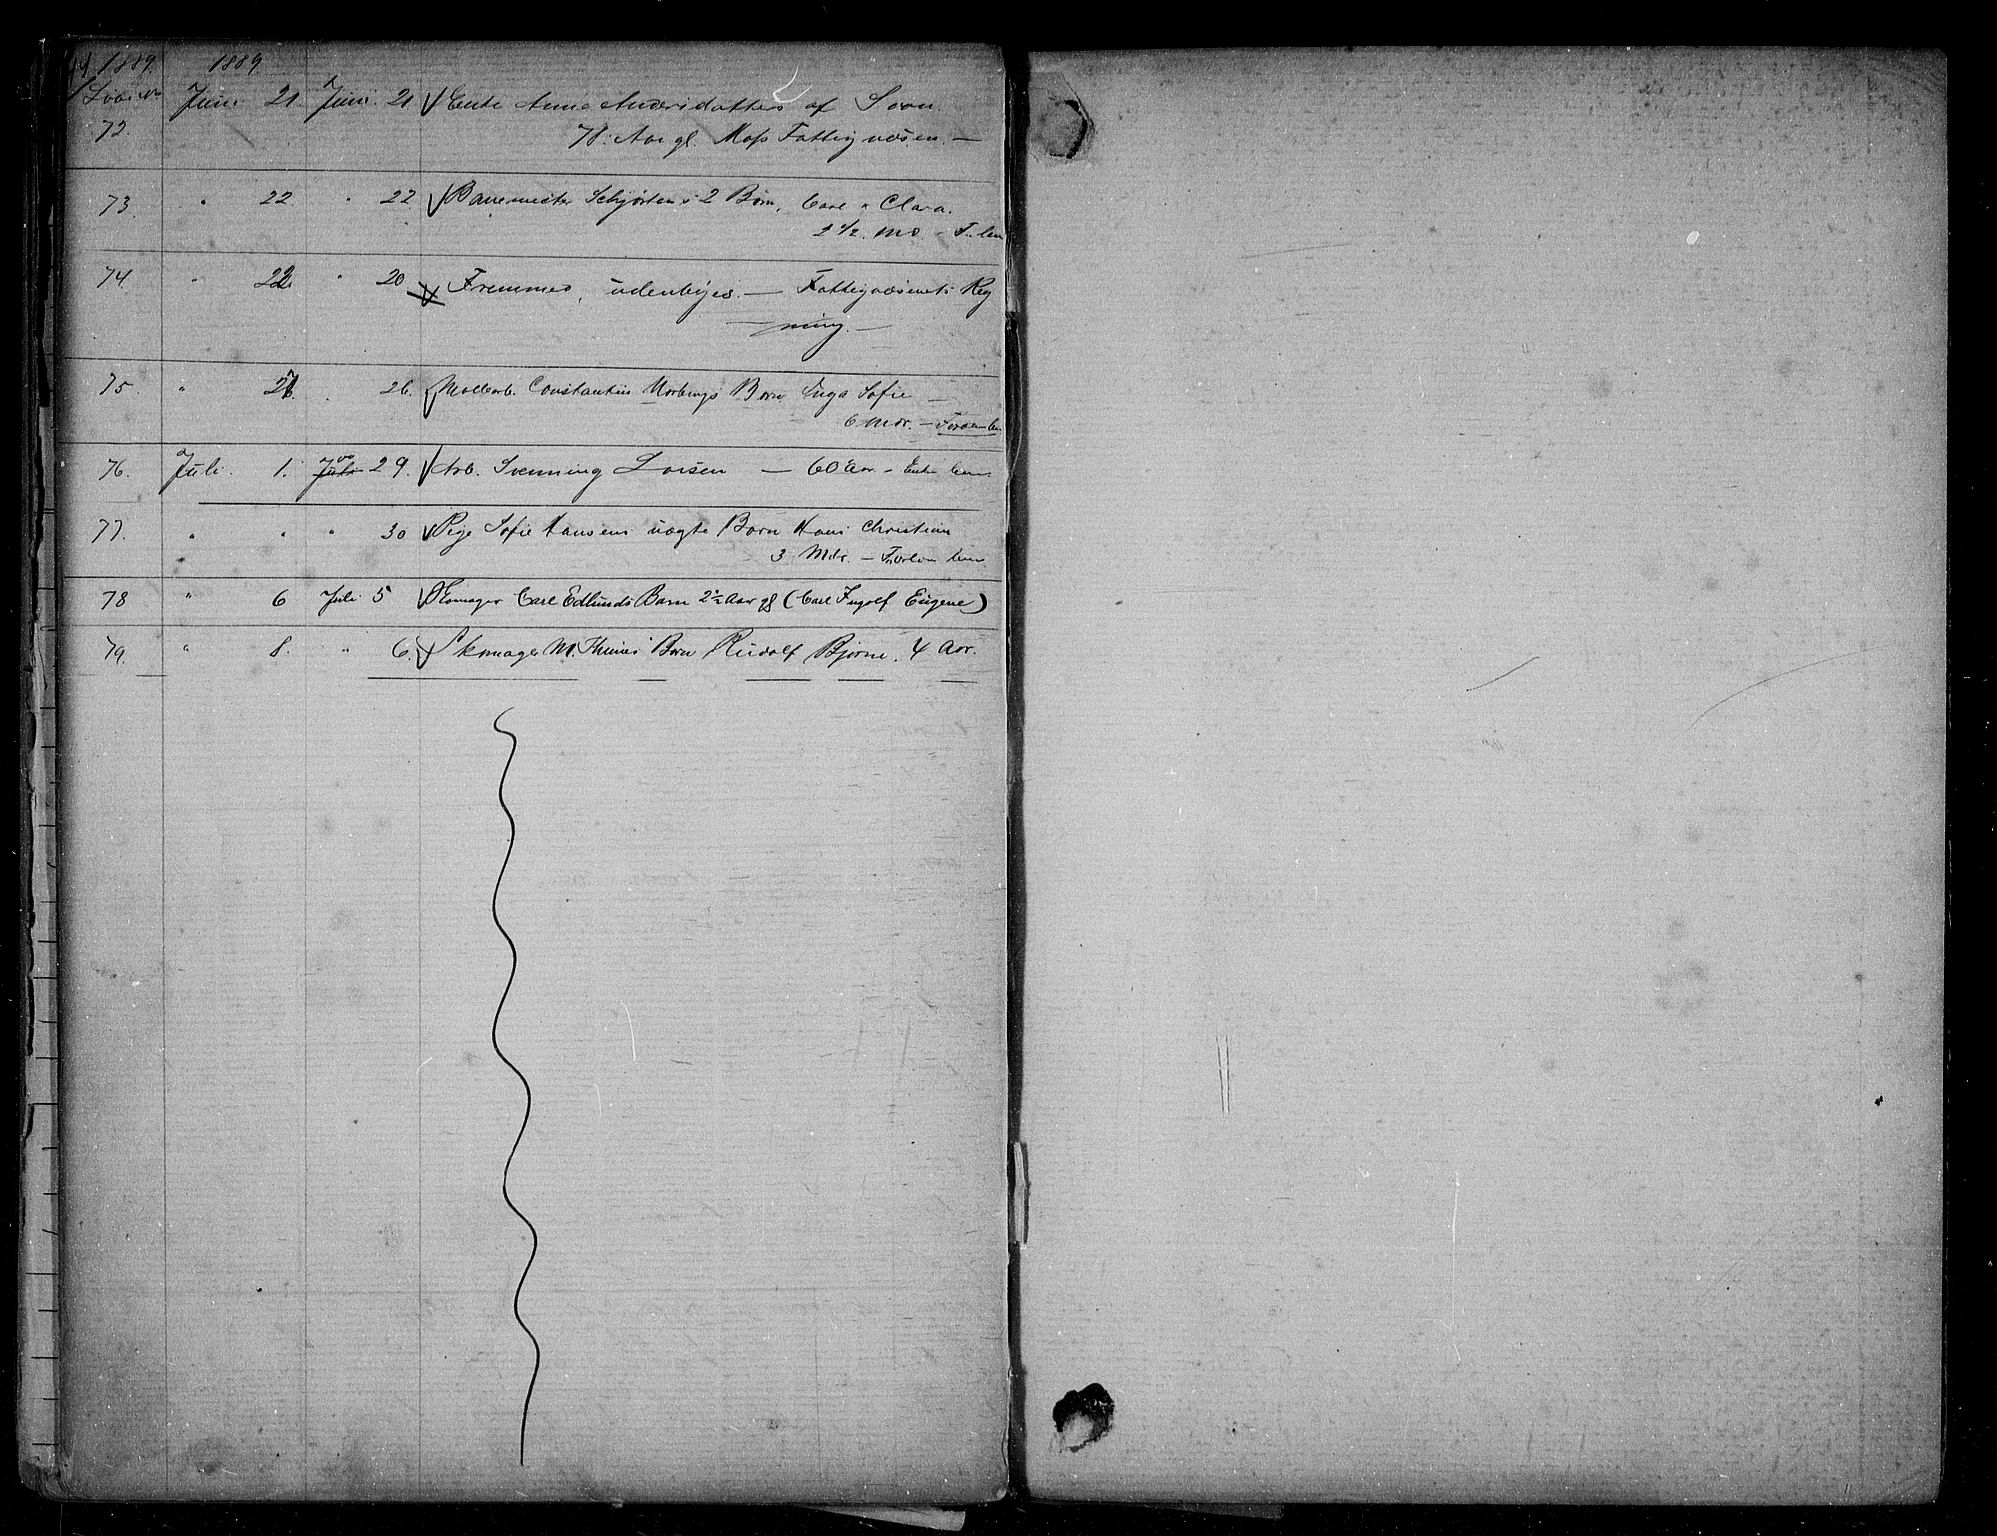 1889. 1889.
Løbe No Juni 21. Juni 21 Enke Anne Andersdatter af Soon.
72. 71. Aar gl. Moss Fattigvæsen. —
73. " 22 " 22 Banemester Schjørtens 2 Børn, Carl & Clara.
2 1/2 Md
74. " 22. " 20 Fremmed, udenbyes. — Fattigvæsenets Reg
ning. —
75. " 26. 26. Møllearb. Constantius Børn Inga Sofie —
6 Mdr. —
76. Juli. 1. Juli 29. Arb. Svenning Larsen — 60 Aar —
77. " " " 30 Pige Sofie Hansens uægte Barn Hans Christian
" 3 Mdr. —
78 " 6 Juli 5 Skomager Carl Edlunds Barn 2 1/2 Aar gl (Carl Ingolf Eugene)
79. " 8. " 6. Skomager M. Barn Rudolf Bjarne. 4 Aar.